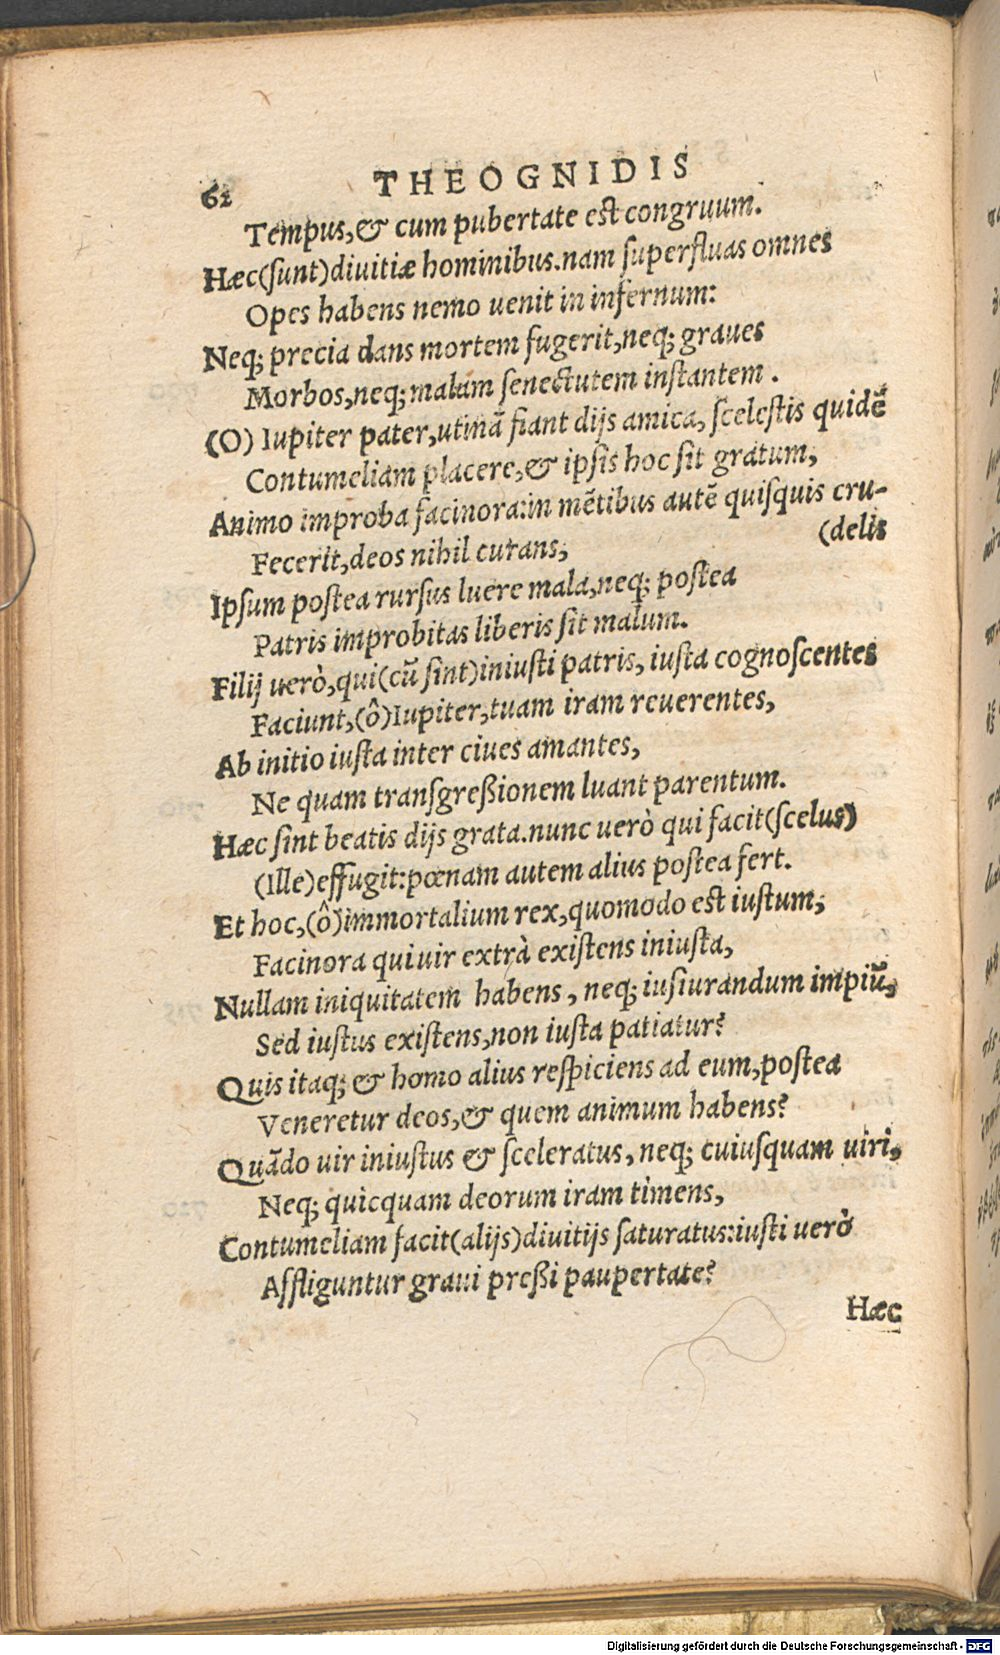 62 THEOGNIDIS
Tempus,& cum pubertate est congruum.
Hæc(ſunt)diuitiæ hominibus.nam ſuperfluas omnes
Opes habens nemo uenit in infernum:
Neq; precia dans mortem fugerit,neq; graues
Morbos,neq;malam ſenectutem inſtantem .
(O) Iupiter pater,utinã fiant dijs amica, ſceleſtis quidẽ
Contumeliam placere,& ipſis hoc ſit gratum,
Animo improba facinora:in mẽtibus autẽ quiſquis cru-
(delis
Fecerit,deos nihil curans,
Ipſum poſtea rurſus luere mala,neq; poſtea
Patris improbitas liberis ſit malum.
Filij uerò,qui(cũ ſint)iniuſti patris, iuſta cognoſcentes
Faciunt,(ô)Iupiter,tuam iram reuerentes,
Ab initio iuſta inter ciues amantes,
Ne quam tranſgreßionem luant parentum.
Hæc ſint beatis dijs grata.nunc uerò qui facit(ſcelus)
(Ille)effugit:pœnam autem alius poſtea fert.
Et hoc,(ô)immortalium rex,quomodo est iuſtum,
Facinora qui uir extrà exiſtens iniuſta,
Nullam iniquitatem habens, neq; iuſiurandum impiũ,
Sed iuſtus exiſtens,non iuſta patiatur?
Quis itaq; & homo alius reſpiciens ad eum,poſtea
Veneretur deos,& quem animum habens?
Quãdo uir iniuſtus & ſceleratus, neq; cuiuſquam uiri,
Neq; quicquam deorum iram timens,
Contumeliam facit(alijs)diuitijs ſaturatus:iuſti uerò
Affliguntur graui preßi paupertate?
Hæc
Digitalisierung gefördert durch die Deutsche Forschungsgemeinschaft - DFG